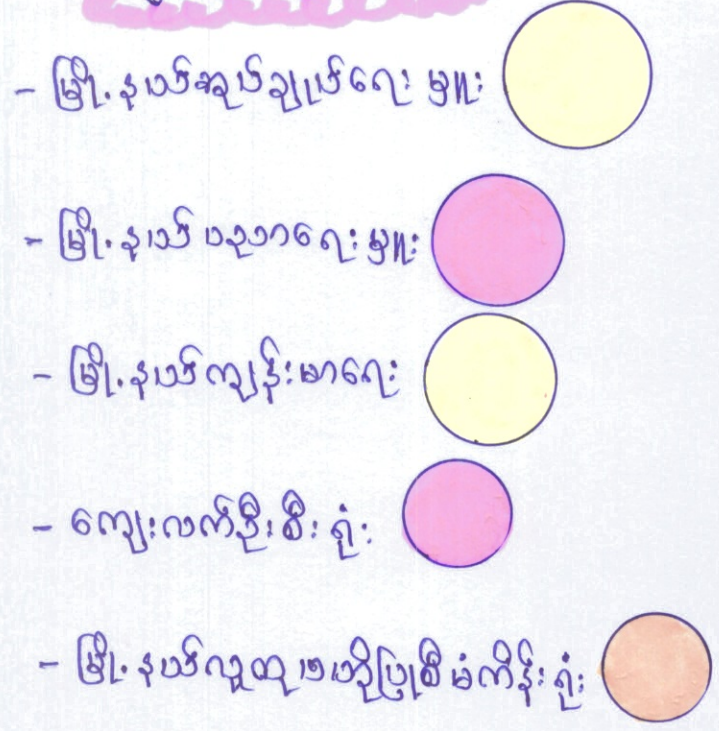 - မြို့နယ်အုပ်ချုပ်ရေးမှူး
- မြို့နယ် ပညာရေးမှူး
- မြို့နယ်ကျန်းမာရေး
- ကျေးလက်ဦးစီးရုံး
- မြို့နယ်လူထု စီမံကိန်းရုံး